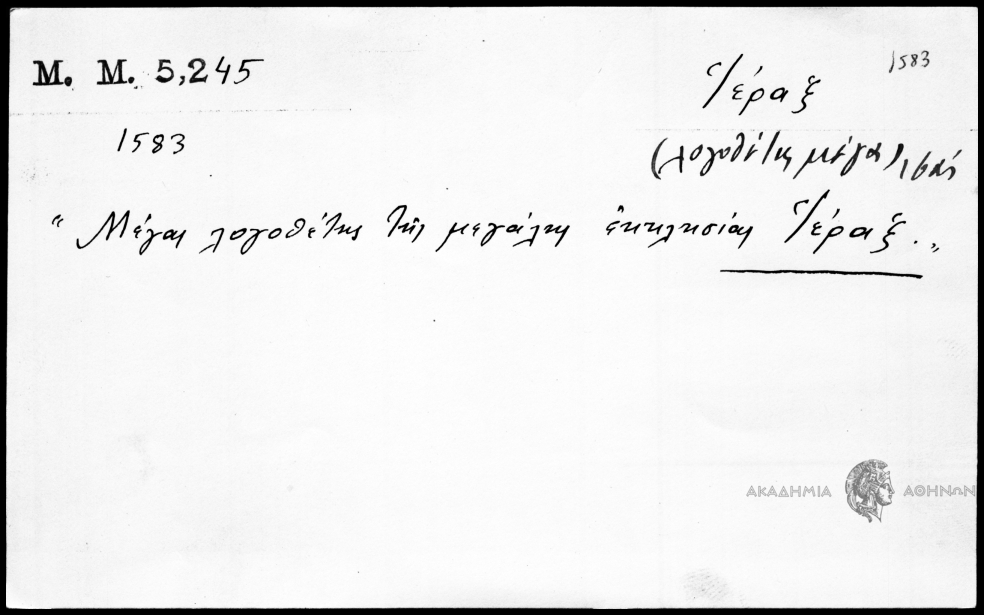 M. M. 5,245
1583
Ἱέραξ
1583
(λογοθέτης μέγας)
“Μέγας λογοθέτης τῆς μεγάλης ἐκκλησίας Ἱέραξ.„
ΑΚΑΔΗΜΙΑ ΑΘΗΝΩΝ